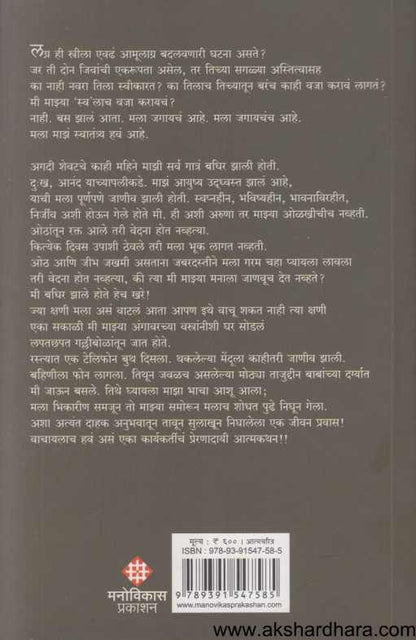 लग्न ही स्त्रीला एवढं आमूलाग्र बदलवणारी घटना असते?
जर ती दोन जिवांची एकरूपता असेल, तर तिच्या सगळ्या अस्तित्वासह
का नाही नवरा तिला स्वीकारत? का तिलाच तिच्यातून बरंच काही वजा करावं लागतं?
मी माझ्या 'स्व'लाच वजा करायचं?
नाही. बस झालं आता. मला जगायचं आहे. मला जगायचंच आहे.
मला माझं स्वातंत्र्य हवं आहे.
अगदी शेवटचे काही महिने माझी सर्व गात्रं बधिर झाली होती.
दुःख, आनंद याच्यापलीकडे. माझं आयुष्य उद्ध्वस्त झालं आहे,
याची मला पूर्णपणे जाणीव झाली होती. स्वप्नहीन, भविष्यहीन, भावनाविरहीत,
निर्जीव अशी होऊन गेले होते मी. ही अशी अरुणा तर माझ्या ओळखीचीच नव्हती.
ओठांतून रक्त आले तरी वेदना होत नव्हत्या.
कित्येक दिवस उपाशी ठेवले तरी मला भूक लागत नव्हती.
ओठ आणि जीभ जखमी असताना जबरदस्तीने मला गरम चहा प्यायला लावला
तरी वेदना होत नव्हत्या, की त्या मी माझ्या मनाला जाणवूच देत नव्हते?
मी बधिर झाले होते हेच खरे!
ज्या क्षणी मला असं वाटलं आता आपण इथे वाचू शकत नाही त्या क्षणी
एका सकाळी मी माझ्या अंगावरच्या वस्त्रांनीशी घर सोडलं
लपतछपत गल्लीबोळांतून जात होते.
रस्त्यात एक टेलिफोन बुथ दिसला. थकलेल्या मेंदूला काहीतरी जाणीव झाली.
बहिणीला फोन लागला. तिथून जवळच असलेल्या मोठ्या ताजुद्दीन बाबांच्या दर्ग्यात
मी जाऊन बसले. तिथे घ्यायला माझा भाचा आशू आला;
मला भिकारीण समजून तो माझ्या समोरून मलाच शोधत पुढे निघून गेला.
अशा अत्यंत दाहक अनुभवातून तावून सुलाखून निघालेला एक जीवन प्रवास!
वाचायलाच हवं असं एका कार्यकर्तीचं प्रेरणादायी आत्मकथन!!
मूल्य : ₹ ६०० । आत्मचरित्र
ISBN : 978-93-91547-58-5
9 789391 547585
मनोविकास
प्रकाशन
www.manovikasprakashan.com
www.akshardhara.com